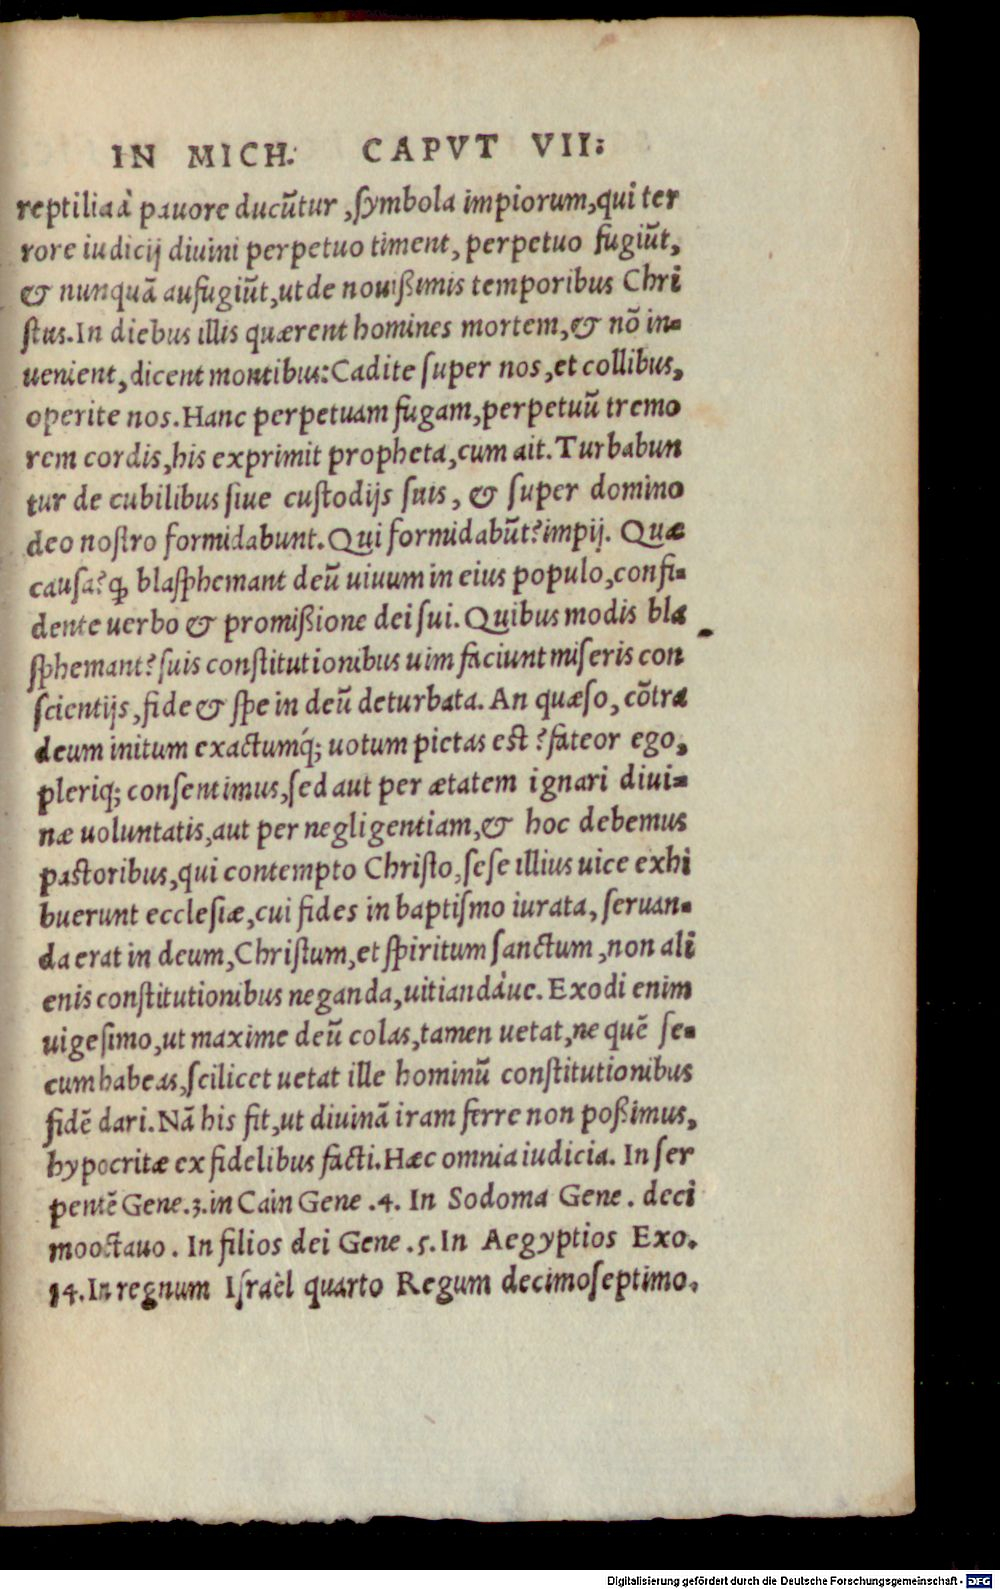 IN MICH. CAPVT VII:
reptilia à pauore ducūtur, ſymbola impiorum, qui ter
rore iudicij diuini perpetuo timent, perpetuo fugiūt,
& nunquā aufugiūt, ut de nouißimis temporibus Chri
ſtus. In diebus illis quærent homines mortem, & nō in-
uenient, dicent montibus: Cadite ſuper nos, et collibus,
operite nos. Hanc perpetuam fugam, perpetuū tremo
rem cordis, his exprimit propheta, cum ait. Turbabun
tur de cubilibus ſiue cuſtodijs ſuis, & ſuper domino
deo noſtro formidabunt. Qui formidabūt? impij. Quæ
cauſa? ꝙ blaſphemant deū uiuum in eius populo, confi-
dente uerbo & promißione dei ſui. Quibus modis bla
ſphemant? ſuis conſtitutionibus uim faciunt miſeris con
ſcientijs, fide & ſpe in deū deturbata. An quæſo, cōtra
deum initum exactumq́; uotum pietas est? fateor ego,
pleriq; conſentimus, ſed aut per ætatem ignari diui-
næ uoluntatis, aut per negligentiam, & hoc debemus
paſtoribus, qui contempto Chriſto, ſeſe illius uice exhi
buerunt eccleſiæ, cui fides in baptiſmo iurata, ſeruan-
da erat in deum, Chriſtum, et ſpiritum ſanctum, non ali
enis conſtitutionibus neganda, uitiandàue. Exodi enim
uigeſimo, ut maxime deū colas, tamen uetat, ne quē ſe-
cum habeas, ſcilicet uetat ille hominū conſtitutionibus
fidē dari. Nā his fit, ut diuinā iram ferre non poßimus,
hypocritæ ex fidelibus facti. Hæc omnia iudicia. In ſer
pentē Gene. 3. in Cain Gene. 4. In Sodoma Gene. deci
mooctauo. In filios dei Gene. 5. In Aegyptios Exo.
14. In regnum Iſraèl quarto Regum decimoſeptimo.
Digitalisierung gefördert durch die Deutsche Forschungsgemeinschaft - DFG